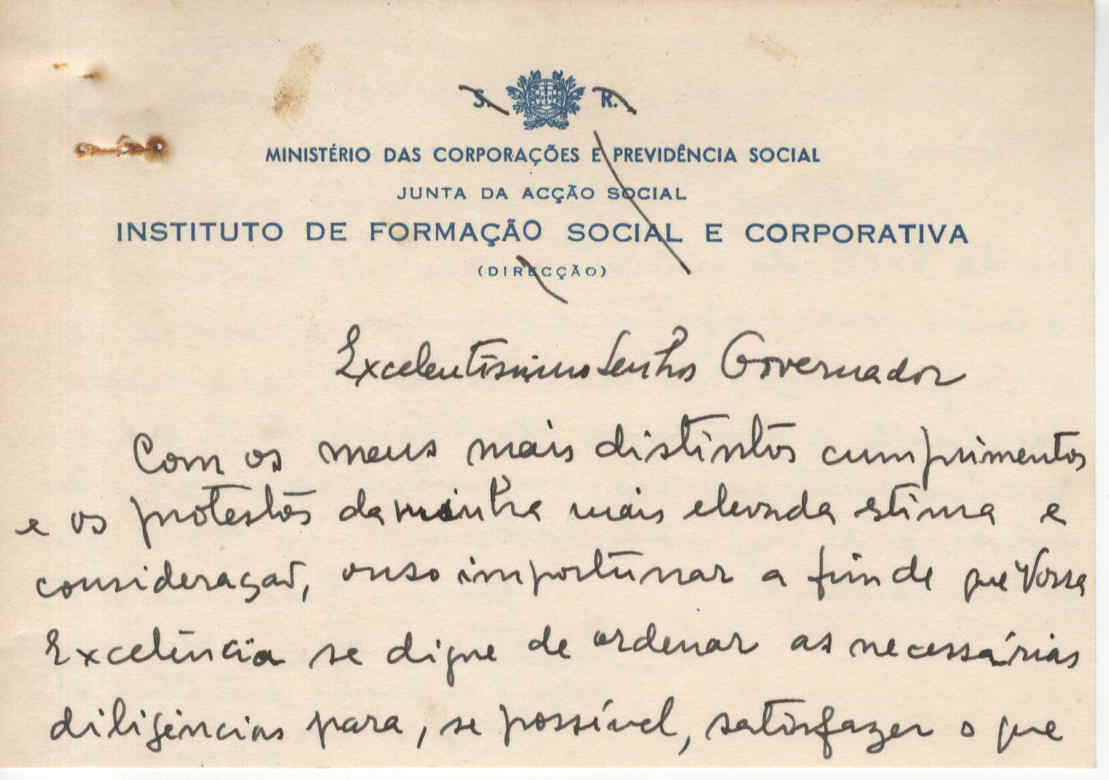 S. R.
MINISTÉRIO DAS CORPORAÇÕES E PREVIDÊNCIA SOCIAL
JUNTA DA ACÇÃO SOCIAL
INSTITUTO DE FORMAÇÃO SOCIAL E CORPORATIVA
(DIRECÇÃO)
Excelentíssimo Senhor Governador
Com os meus mais distintos cumprimentos
e os protestos da minha mais elevada estima e
consideração, ouso importunar a fim de que Vossa
Excelência se digne de ordenar as necessárias
diligências para, se possível, satisfazer o que